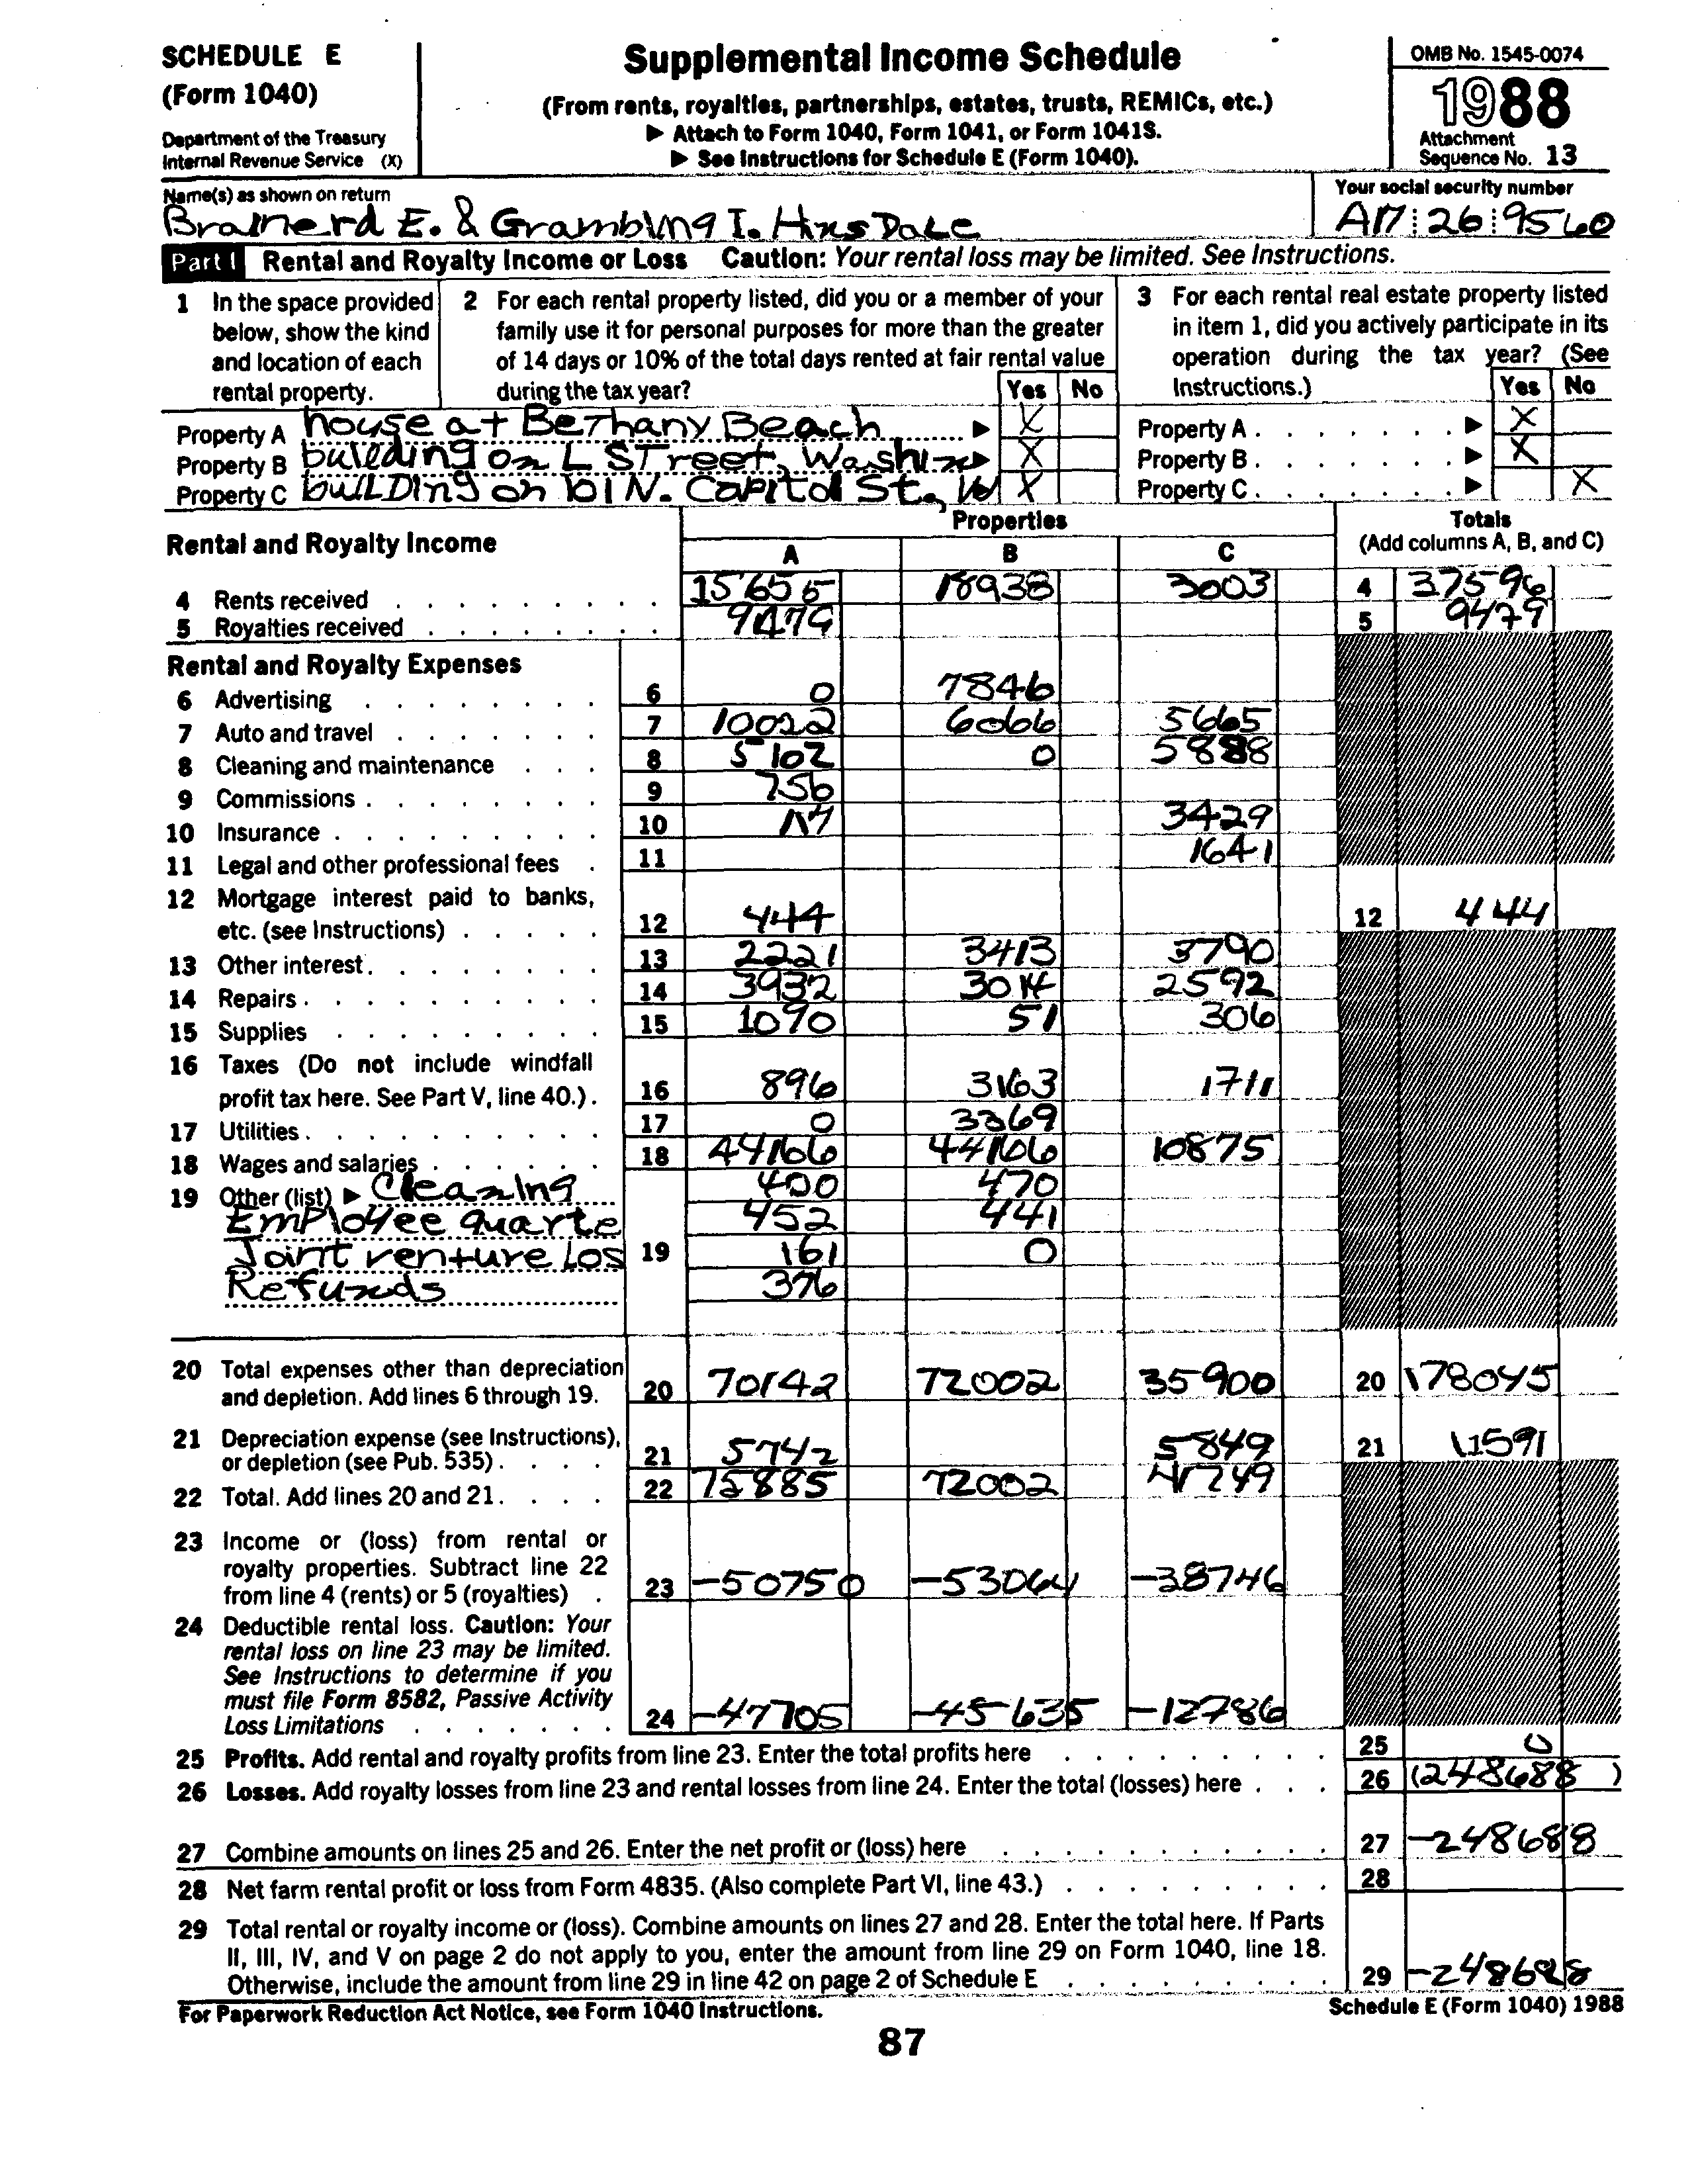 SCHEDULE E
(Form 1040)
Department of the Treasury
Internal Revenue Service (X)
Supplemental Income Schedule
(From rents, royalties, partnerships, estates, trusts, REMICs, etc.)
▶ Attach to Form 1040, Form 1041, or Form 1041S.
▶ See Instructions for Schedule E (Form 1040).
OMB No. 1545-0074
1988
Attachment
Sequence No. 13
Name(s) as shown on return
Brainerd E. & Grambling I. HinsDaLe
Your social security number
26 9560
Part I Rental and Royalty Income or Loss Caution: Your rental loss may be limited. See Instructions.
1 In the space provided below, show the kind and location of each rental property.
2 For each rental property listed, did you or a member of your family use it for personal purposes for more than the greater of 14 days or 10% of the total days rented at fair rental value during the tax year? Yes No
3 For each rental real estate property listed in item 1, did you actively participate in its operation during the tax year? (See Instructions.) Yes No
Property A house at Bethany Beach ▶ X Property A ▶ X
Property B building on L STreet, Washin ▶ X Property B ▶ X
Property C buiLDing on 101 N. Capitol St., W X Property C ▶ X
Rental and Royalty Income
Properties
A B C
Totals
(Add columns A, B, and C)
4 Rents received 15655 18938 3003 4 37596
5 Royalties received 9479 5 9479
Rental and Royalty Expenses
6 Advertising 6 0 7846
7 Auto and travel 7 10022 6066 5665
8 Cleaning and maintenance 8 5102 0 5888
9 Commissions 9 756
10 Insurance 10 117 3429
11 Legal and other professional fees 11 1641
12 Mortgage interest paid to banks, etc. (see Instructions) 12 444 12 444
13 Other interest 13 2221 3413 3790
14 Repairs 14 3932 3014 2592
15 Supplies 15 1090 51 306
16 Taxes (Do not include windfall profit tax here. See Part V, line 40.) 16 896 3163 1711
17 Utilities 17 0 3369
18 Wages and salaries 18 44166 44166 10875
19 Other (list) ▶ Cleaning 400 470
Employee quarte 452 441
Joint venture Los 19 161 0
Refunds 376
20 Total expenses other than depreciation and depletion. Add lines 6 through 19. 20 70142 72002 35900 20 178045
21 Depreciation expense (see Instructions), or depletion (see Pub. 535) 21 5742 5849 21 11591
22 Total. Add lines 20 and 21. 22 75885 72002 41749
23 Income or (loss) from rental or royalty properties. Subtract line 22 from line 4 (rents) or 5 (royalties) 23 -50750 -53064 -38746
24 Deductible rental loss. Caution: Your rental loss on line 23 may be limited. See Instructions to determine if you must file Form 8582, Passive Activity Loss Limitations 24 -47705 -45635 -12786
25 Profits. Add rental and royalty profits from line 23. Enter the total profits here 25 0
26 Losses. Add royalty losses from line 23 and rental losses from line 24. Enter the total (losses) here 26 (248688)
27 Combine amounts on lines 25 and 26. Enter the net profit or (loss) here 27 -248688
28 Net farm rental profit or loss from Form 4835. (Also complete Part VI, line 43.) 28
29 Total rental or royalty income or (loss). Combine amounts on lines 27 and 28. Enter the total here. If Parts
II, III, IV, and V on page 2 do not apply to you, enter the amount from line 29 on Form 1040, line 18.
Otherwise, include the amount from line 29 in line 42 on page 2 of Schedule E 29 -248688
For Paperwork Reduction Act Notice, see Form 1040 Instructions.
Schedule E (Form 1040) 1988
87